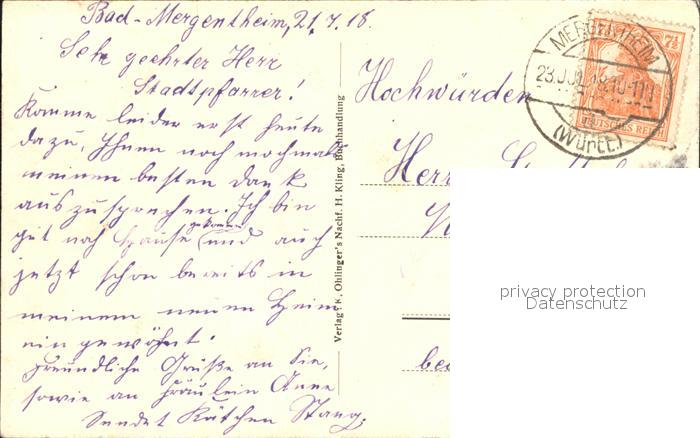 Bad-Mergentheim, 21.7.18.
Sehr geehrter Herr
Stadtpfarrer!
Komme leider erst heute
dazu, Ihnen noch nochmals
meinen besten Dank
auszusprechen. Ich bin
gekommen
gut nach Hause und auch
jetzt schon bereits in
meinem neuen Heim
eingewöhnt.
Freundliche Grüße an Sie,
sowie an Fräulein Anne
Sendet Kätchen Stang.
Verlag K. Ohlinger's Nachf. H. Kling, Buchhandlung
Hochwürden
Herr
MERGENTHEIM
(Württ.)
7½
DEUTSCHES REICH
privacy protection
Datenschutz